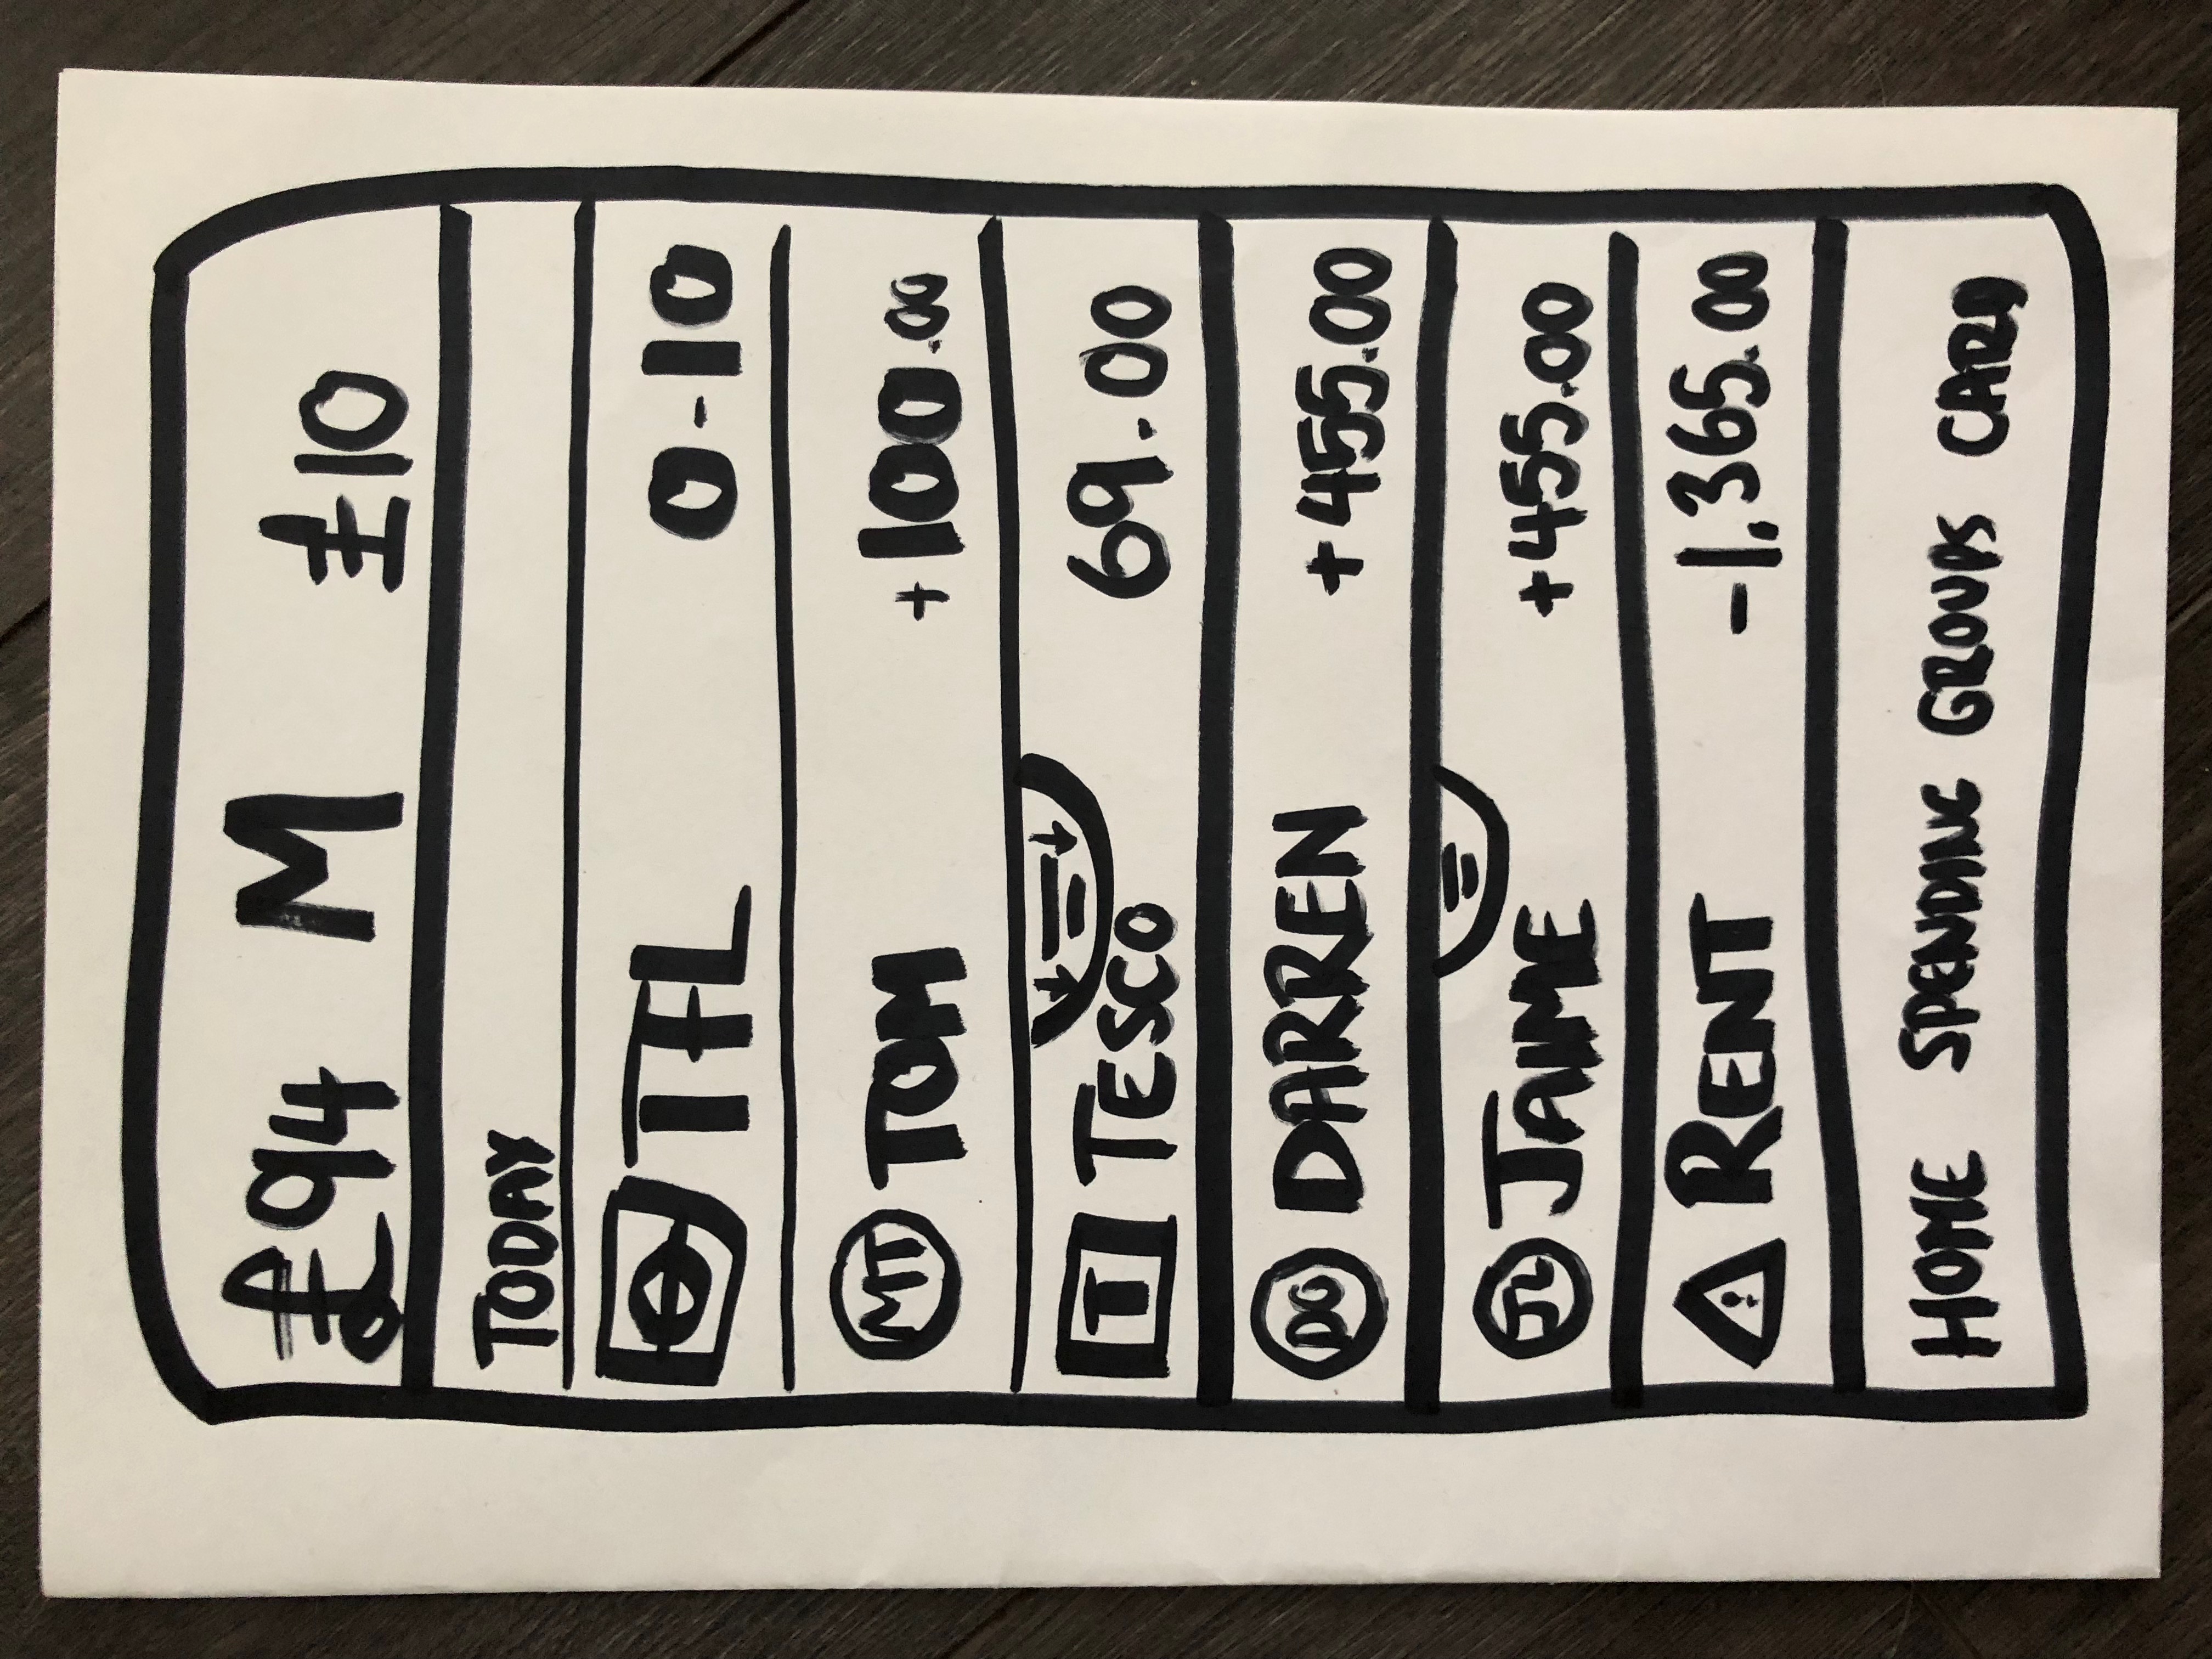 £94 M £10
TODAY
TFL 0-10
MT TOM +100.00
T TESCO 69.00
DG DARREN +455.00
JL JAIME +455.00
! RENT -1,365.00
HOME SPENDING GROUPS CARD